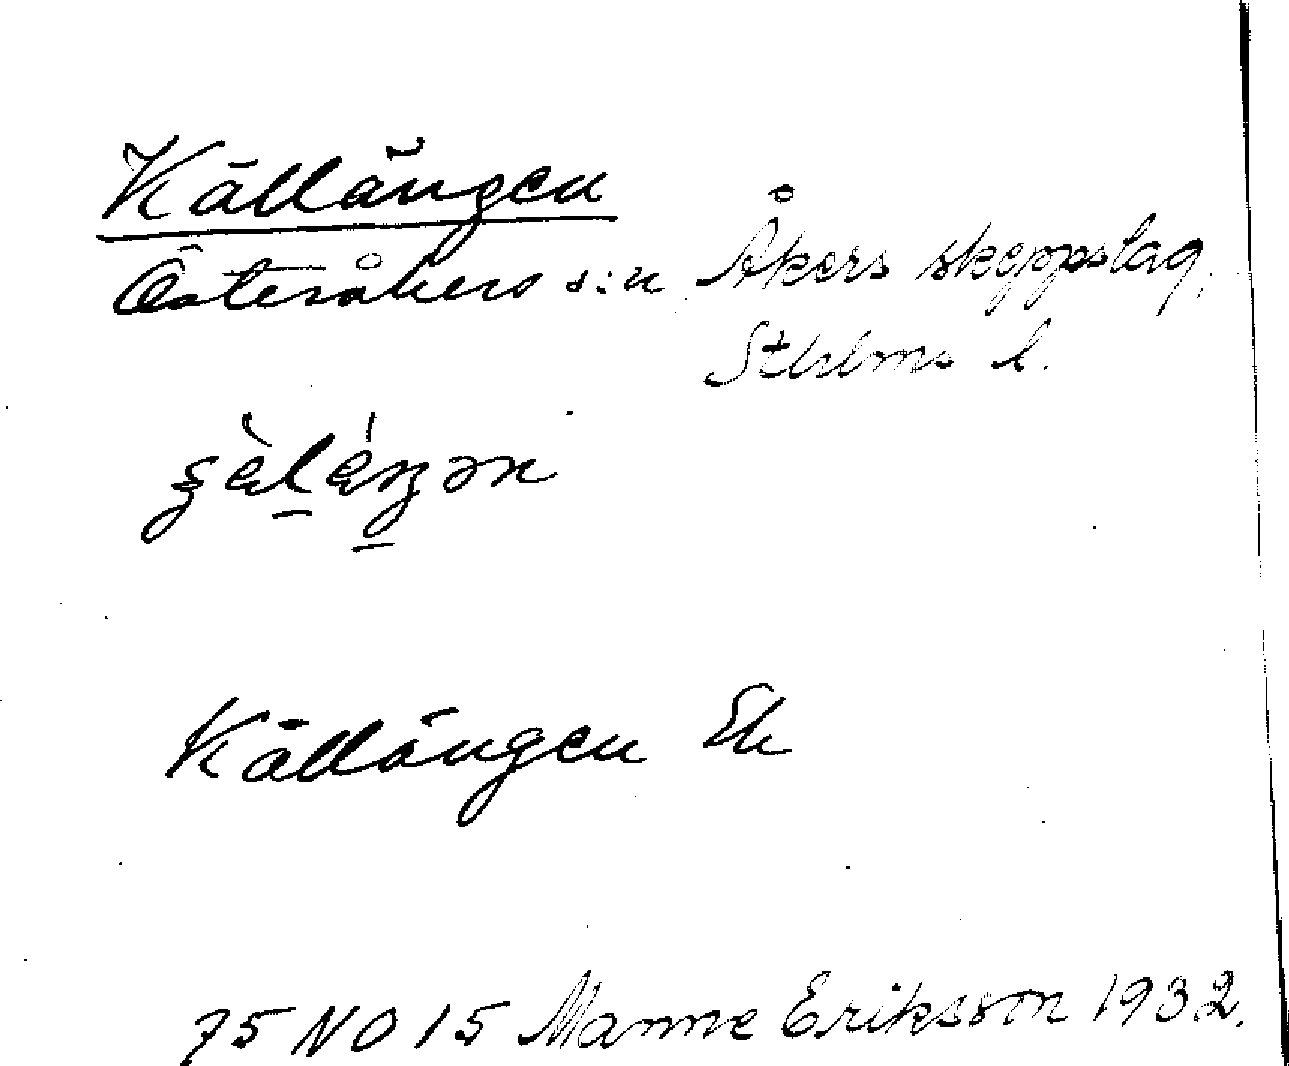 Källängen
Österåkers s:n Åkers skeppslag,
Sthlms l.
Källängen Ek
75 NO 15 Manne Eriksson 1932.